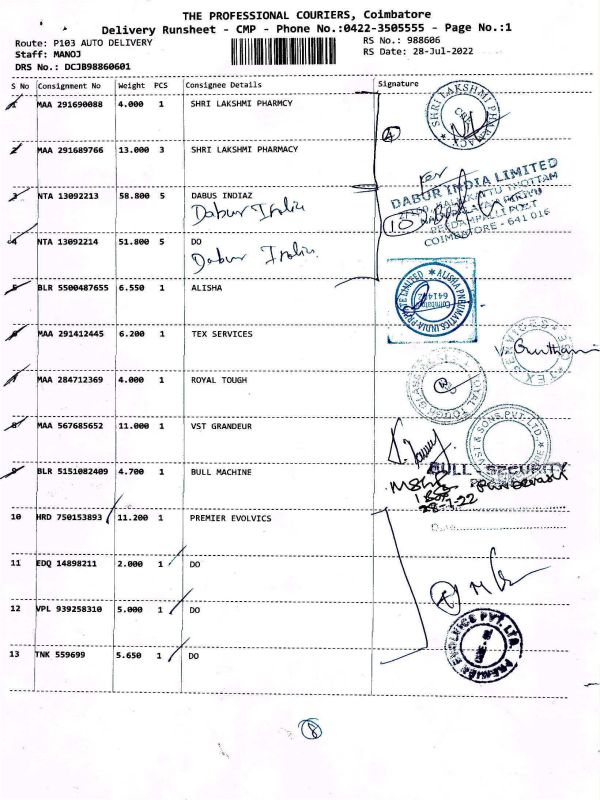 THE PROFESSIONAL COURIERS, Coimbatore
Delivery Runsheet - CMP - Phone No.:0422-3505555 - Page No.:1
Route: P103 AUTO DELIVERY RS No.: 988606
Staff: MANOJ RS Date: 28-Jul-2022
DRS No.: DCJB98860601
S No Consignment No Weight PCS Consignee Details Signature
1 MAA 291690088 4.000 1 SHRI LAKSHMI PHARMCY
SHRI LAKSHMI PHARMACY
CBE
4
2 MAA 291689766 13.000 3 SHRI LAKSHMI PHARMACY
For
DABUR INDIA LIMITED
3 NTA 13092213 58.800 5 DABUS INDIAZ
Dabur India
10
PEEDAMPALLI POST
COIMBATORE - 641 016
4 NTA 13092214 51.800 5 DO
Dabur India
5 BLR 5500487655 6.550 1 ALISHA
ALISHA PNEUMATICS INDIA PRIVATE LIMITED
Coimbatore
6 MAA 291412445 6.200 1 TEX SERVICES
TEX SERVICES
7 MAA 284712369 4.000 1 ROYAL TOUGH
ROYAL TOUGH GLASS
8 MAA 567685652 11.000 1 VST GRANDEUR
& SONS PVT. LTD.
9 BLR 5151082409 4.700 1 BULL MACHINE
BULL SECURITY
28-7-22
Date
10 HRD 750153893 11.200 1 PREMIER EVOLVICS
11 EDQ 14898211 2.000 1 DO
12 VPL 939258310 5.000 1 DO
4
PREMIER EVOLVICS PVT. LTD.
13 TNK 559699 5.650 1 DO
8